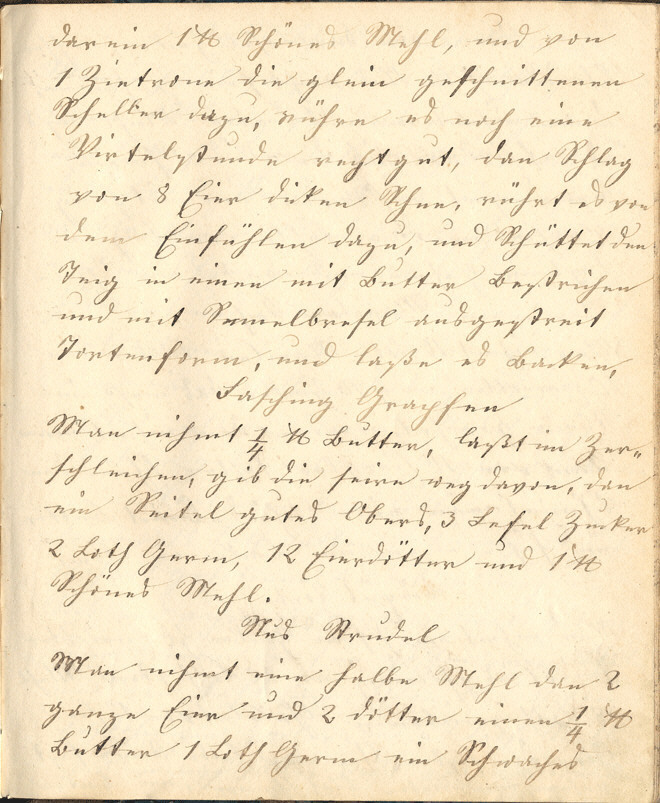 darein 1 ℔ Schönes Mehl, und von
1 Zietrone die glein geschnittenen
Scheller dazu, rühre es noch eine
Virtelstunde recht gut, dan Schlag
von 8 Eier dicken Schne, rührt es von
dem Einfühlen dazu, und Schüttet den
Teig in einen mit Butter Bestrichen
und mit Semelbresel ausgestreit
Tortenform, und laße es Backen,
Fasching Grapfen
Man nihmt 1/4 ℔ Butter, laßt im Zer„
schleichen, gib die feire weg davon, dan
ein Seitel gutes Obers, 3 Lefel Zucker
2 Loth Germ, 12 Eierdötter und 1 ℔
Schönes Mehl.
Nus Strudel
Man nihmt eine halbe Mehl dan 2
ganze Eier und 2 dötter einen 1/4 ℔
Butter 1 Loth Germ ein Schwaches